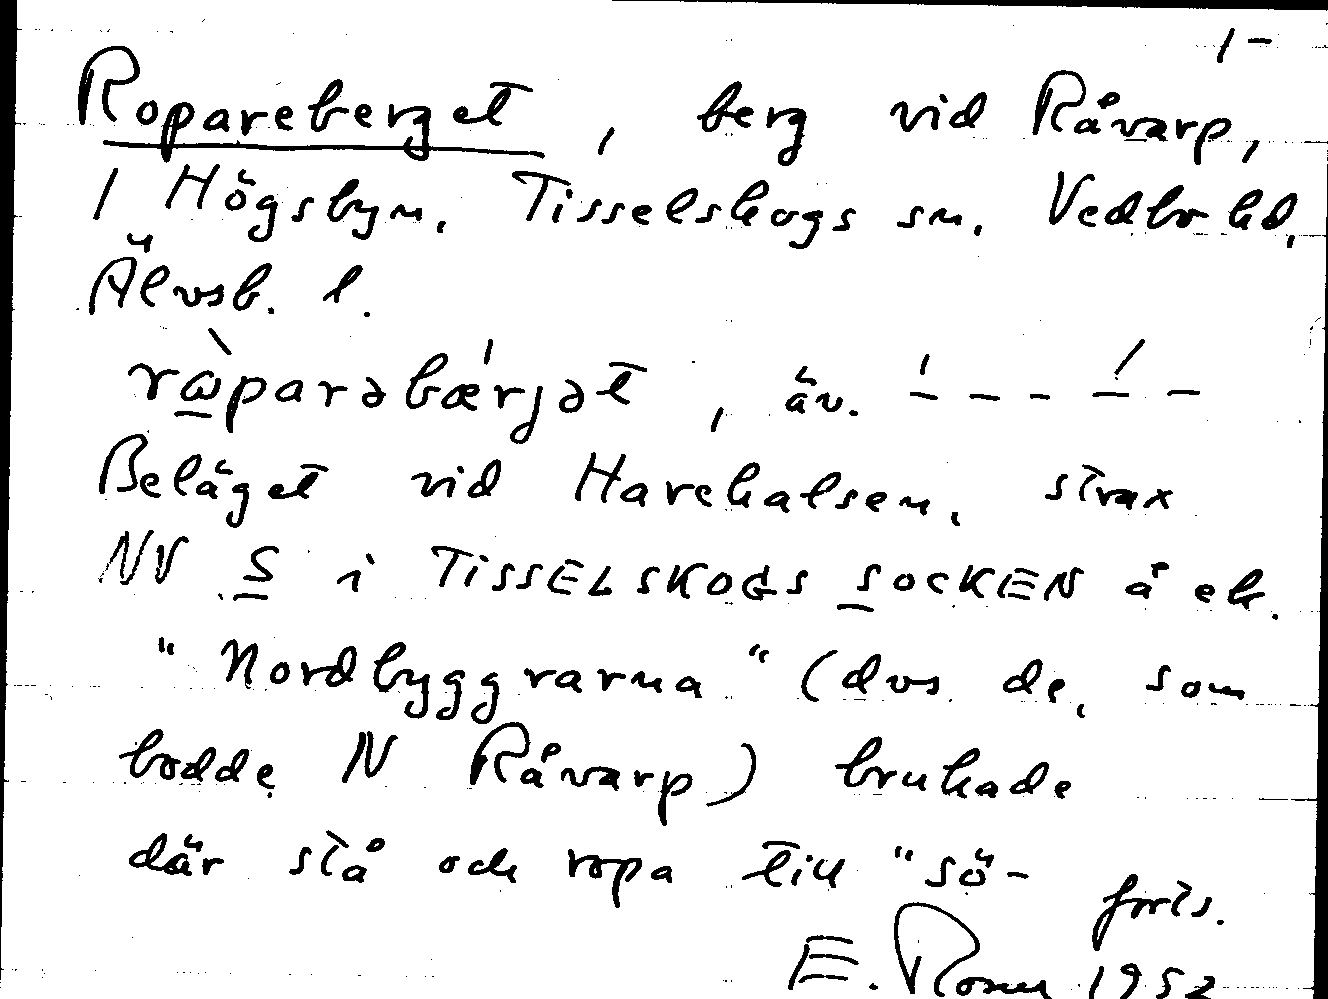 1-
Ropareberget, berg vid Råvarp,
/ Högsbyn. Tisselskogs sn. Vedbo hd,
Älvsb. l.
rɷ̀parəbærjət, äv. ˈ- - - ˈ- -
Beläget vid Harehalsen, strax
NV S i TISSELSKOGS SOCKEN å ek.
"Nordbyggrarna" (dvs de, som
bodde N Råvarp) brukade
där stå och ropa till "sö-
forts.
E. 1952